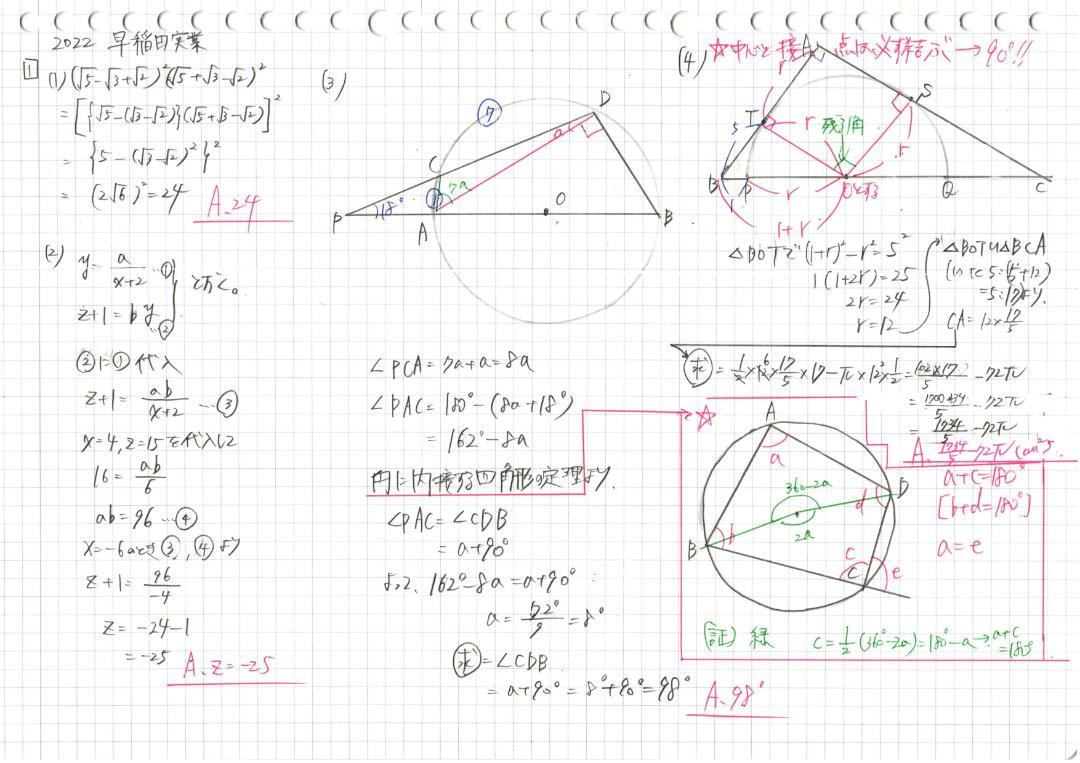 2022 早稲田実業
1 (1) (√5-√3+√2)²(√5+√3-√2)²
= [{√5-(√3-√2)}(√5+√3-√2)]²
= {5-(√3-√2)²}²
= (2√6)² = 24
A、24
(2) y = a/(x+2) …①
z+1 = by …②
とおく。
②に①代入
z+1 = ab/(x+2) …③
x=4, z=15を代入して
16 = ab/6
ab = 96 …④
x=-6のとき③, ④より
z+1 = 96/-4
z = -24-1
= -25
A、z=-25
(3)
⑦
D
a
C
7a
18°
①
P
A
O
B
∠PCA = 7a+a = 8a
∠PAC = 180°-(8a+18°)
= 162°-8a
円に内接する四角形の定理より、
∠PAC = ∠CDB
= a+90°
よって、162°-8a = a+90°
a = 72°/9 = 8°
求 = ∠CDB
= a+90° = 8°+90° = 98°
A、98°
(4) ☆中心と接点は必ず結ぶ→90°!!
A
r
S
T
5
r
残り角
r
B
P
Oとする
Q
C
1
r
1+r
△BOTで(1+r)²-r² = 5²
1(1+2r) = 25
2r = 24
r = 12
△BOT∽△BCA
CA = 12×17/5
求 = 1/2×12×17/5×17-π×12²×1/2 = (102×17)/5-72π
= (1700+34)/5-72π
= 1734/5-72π
A、1734/5-72π(cm²)
☆
A
a
360-2a
D
d
2a
B
b
c
C
e
a+c=180°
[b+d=180°]
a=e
(証) 緑 c = 1/2(360°-2a) = 180°-a → a+c=180°